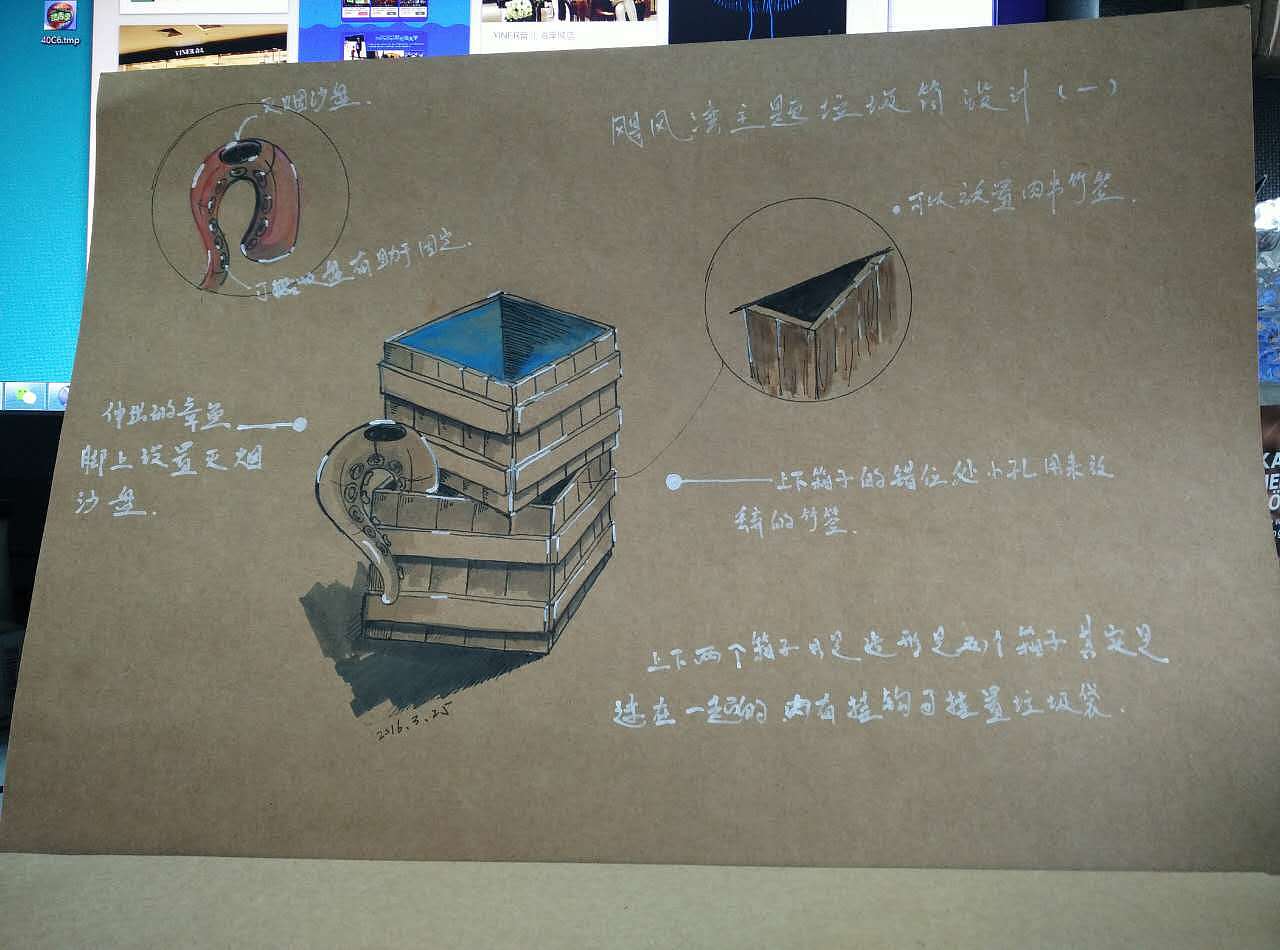 40C6.tmp
YINER音儿
灭烟沙盘.
飓风湾主题垃圾筒设计(一)
可以设置肉串竹签.
吸盘有助于固定.
伸出的章鱼
脚上设置灭烟
沙盘.
上下箱子的错位处小孔用来放
弃的竹签.
上下两个箱子只是造形是两个箱子其实是
连在一起的,内有挂钩可挂置垃圾袋.
2016.3.25